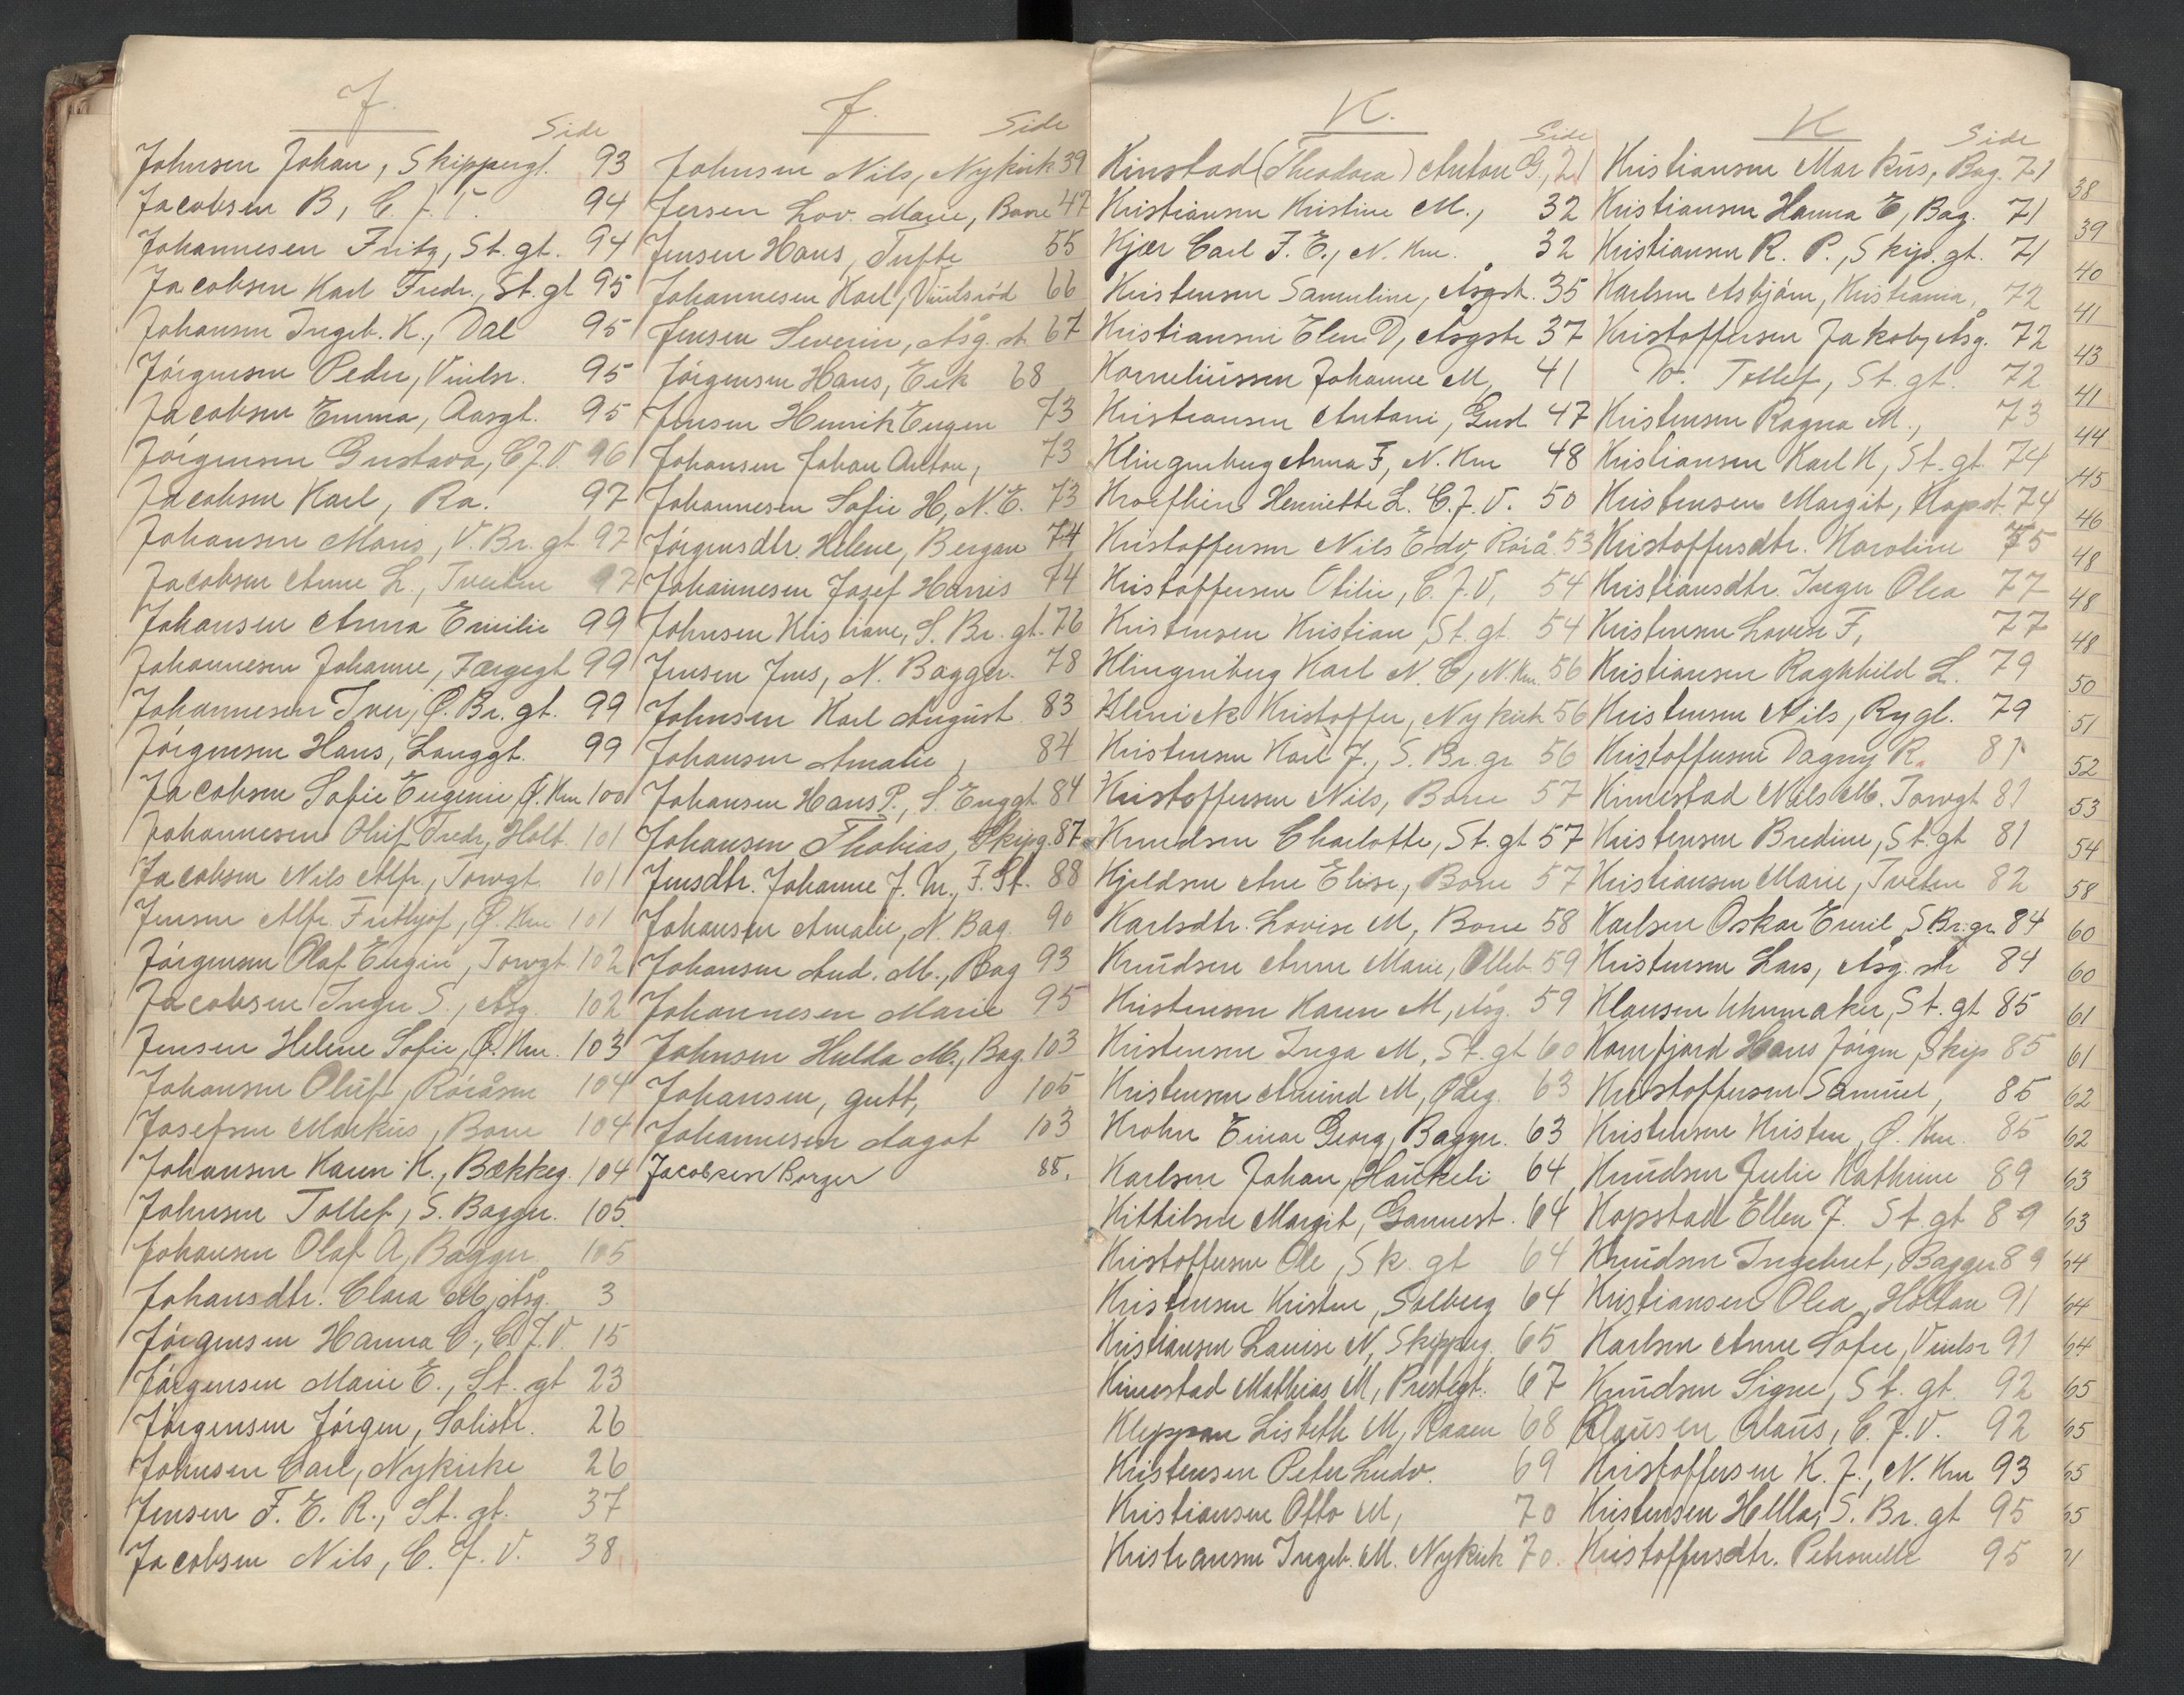 J.
Side
Johnsen Johan, Skippergt. 93
Jacobsen B, C. J. V. 94
Johannesen Fritz, St. gt. 94
Jacobsen Karl Fredr., St. gt 95
Johansen Ingeb. K., Dal 95
Jörgensen Peder, Vinlsr. 95
Jacobsen Emma, Aasgt. 95
Jörgensen Gustava, C.J.V. 96
Jacobsen Karl, Ra. 97
Johansen Maris, V. Br. gt. 97
Jacobsen Anne L., Tveiten 97
Johansen Anna Emilie 99
Johannesen Johanne, Færgegt 99
Johannesen Iver, Ø. Br. gt. 99
Jörgensen Hans, Langgt. 99
Jacobsen Sofie Eugenie, Ø. Km 100
Johannesen Oluf Fredr, Holt. 101
Jacobsen Nils Alfr., Torvgt. 101
Jensen Alfr. Frithjof, Ø. Km 101
Jörgensen Olaf Eugin, Torvgt 102
Jacobsen Inger S., Åsg. 102
Jensen Helene Sofie, Ø. Km. 103
Johansen Oluf, Röråsen 104
Josefsen Markus, Borre 104
Johansen Karen K., Bækkeg. 104
Johnsen Tollef, S. Bagger. 105
Johansen Olaf A, Bagger 105
Johansdtr. Clara M, Åsg. 3
Jörgensen Hanna C., C.J.V. 15
Jörgensen Marie E., St. gt 23
Jörgensen Jörgen, Solistr. 26
Johnsen Carl, Nykirke 26
Jensen F. E. R., St. gt. 37
Jacobsen Nils, C. J. V. 38
J.
Side
Johnsen Nils, Nykirk 39
Jensen Lov. Marie, Borre 47
Jensen Hans, Tufte 55
Johannesen Karl, Vinlsröd 66
Jensen Severin, Åsg. st. 67
Jörgensen Hans, Eik 68
Jensen Henrik Eugen 73
Johansen Johan Anton, 73
Johannesen Sofie H, N. E. 73
Jörgensdtr. Helene, Bergan 74
Johannesen Josef Harris 74
Johnsen Kristiane, S. Br. gt. 76
Jensen Jens, N. Bagger. 78
Johnsen Karl August 83
Johansen Amalie, 84
Johansen Hans P., S. Enggt 84
Johansen Thobias, Skipg. 87
Jensdtr. Johanne J. M., F. St. 88
Johansen Amalie, N. Bag. 90
Johansen And. M., Bag 93
Johannesen Marie 95
Johnsen Hulda M., Bag. 103
Johansen, gutt, 105
Johannesen Aagot 103
Jacobsen Borger 88.
K.
Side
Kinstad (Theodora) Anton G, 21
Kristiansen Kristine M., 32
Kjær Carl F. E., N. Km. 32
Kristensen Samuline, Åsgst. 35
Kristiansen Elen D, Åsgstr 37
Korneliussen Johanne M, 41
Kristiansen Antoni, Gust 47
Klingenberg Anna F, N. Km 48
Henriette L. C. J. V. 50
Kristoffersen Nils Edv, Rörå 53
Kristoffersen Otilie, C. J. V, 54
Kristensen Kristian, St. gt. 54
Klingenberg Karl N. C, N. Km. 56
Kristoffer, Nykirk 56
Kristensen Karl J., S. Br. gr 56
Kristoffersen Nils, Borre 57
Knudsen Charlotte, St. gt 57
Kjeldsen Ane Elise, Borre 57
Karlsdtr. Lovise M, Borre 58
Knudsen Anne Marie, Olleb. 59
Kristensen Karen M, Åsg. 59
Kristensen Inga M, St. gt 60
Kristensen Amund M, Ödeg. 63
Krohn Einar Georg, Bagger. 63
Karlsen Johan, Haukeli 64
Kittilsen Margit, Gannest. 64
Kristoffersen Ole, Sk. gt 64
Kristensen Kristen, Solberg 64
Kristiansen Lauise N, Skipperg. 65
Kinnestad Mathias M, Prestegt. 67
Kleppan Lisbeth M, Raaen 68
Kristensen Peter Ludv. 69
Kristiansen Otto M, 70
Kristiansen Ingeb. M. Nykirk 70.
K
Side
Kristiansen Markus, Bag. 71
Kristiansen Hanna E, Bag. 71
Kristiansen R. P., Skip. gt. 71
Karlsen Asbjörn, Kristiania, 72
Kristoffersen Jakob, Åsg. 72
Do. Tollef, St. gt. 72
Kristensen Ragna M., 73
Kristiansen Karl K, St. gt. 74
Kristensen Margit, Kopst. 74
Kristoffersdtr. Karoline 75
Kristiansdtr. Inger Olea 77
Kristensen Lovise F, 77
Kristiansen Raghhild L. 79
Kristensen Nils, Rygl. 79
Kristoffersen Dagny R. 81
Kinnestad Nils M. Torvgt 81
Kristensen Bredine, St. gt 81
Kristiansen Marie, Tveten 82
Karlsen Oskar Emil, S. Br. gr. 84
Kristensen Lars, Åsg. str 84
Klausen Uhrmaker, St. gt 85
Kornfjord Hans Jörgen, Skip 85
Kristoffersen Samuel, 85
Kristensen Kristen, Ø. Km. 85
Knudsen Julie Kathrine 89
Kopstad Ellen J. St. gt 89
Knudsen Ingebret, Bagger 89
Kristiansen Olea, Holtan 91
Karlsen Anne Sofie, Vinlsr 91
Knudsen Signe, St. gt. 92
Klausen Claus, C. J. V. 92
Kristoffersen K. J., N. Km 93
Kristensen Hella, S. Br. gt 95
Kristoffersdtr. Petronelle 95
38
39
40
41
43
41
44
45
46
48
48
48
50
51
52
53
54
58
60
60
61
61
62
62
63
63
64
64
64
65
65
65
65
71